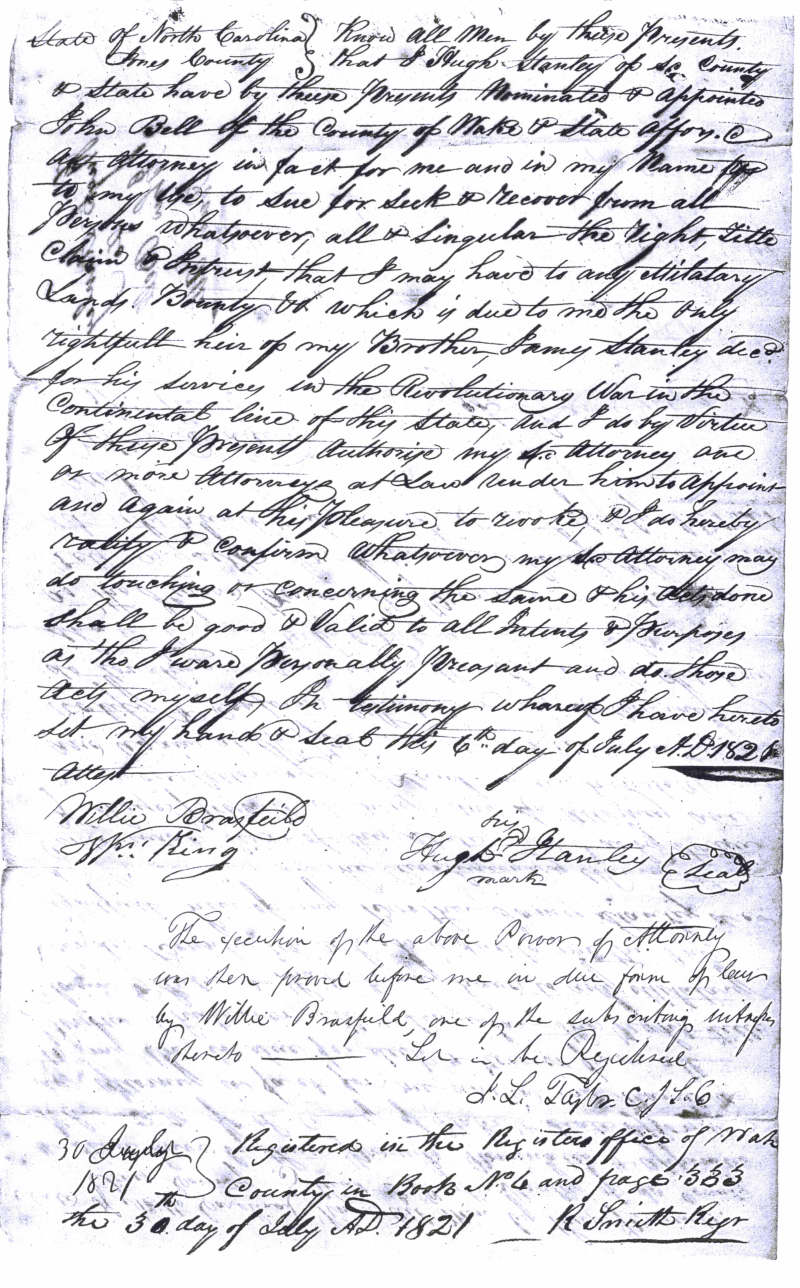 State of North Carolina } Know all Men by these Presents.
Jones County } that I Hugh Stanley of sd. County
& State have by these Presents Nominated & Appointed
John Bell of the County of Wake & State affors.d
Attorney in fact for me and in my Name for
to my Use, to sue for Seek & recover from all
Persons whatsoever, all & singular the right, Title
Claim & Intrust that I may have to any Militarry
Lands Bounty &c which is due to me the only
rightfull heir of my Brother, James Stanley decd.
for his services in the Revolutionary War in the
Contimental line of this State, and I do by Virtue
Of these Presents Authorise my sd. Attorney one
or more Attorneys at Law under him to appoint
and again at his Pleasure to revoke, & I do hereby
ratify & confirm Whatsoever my sd. Attorney may
do touching or concerning the same & his Acts done
shall be good & Valid to all Intents & Purposes
as tho I ware Personally Preasant and do those
Acts myself, In testimony whareof I have hereto
set my hand & Seal this 6th day of July A.D. 1821
Attest
Willie Brasfeild
Wm. King
his
Hugh Stanley Seal
mark
The execution of the above Power of Attorney
was then proved before me in due form of law
by Willie Brasfield, one of the subscribing witness
thereto ——— Let it be Registered
J. L. Taylor C. J. S. C
30 July } Registered in the Registers office of Wak
1821 } County in Book No. 6 and page 333
the 30th day of July A.D. 1821 R Smith Regr